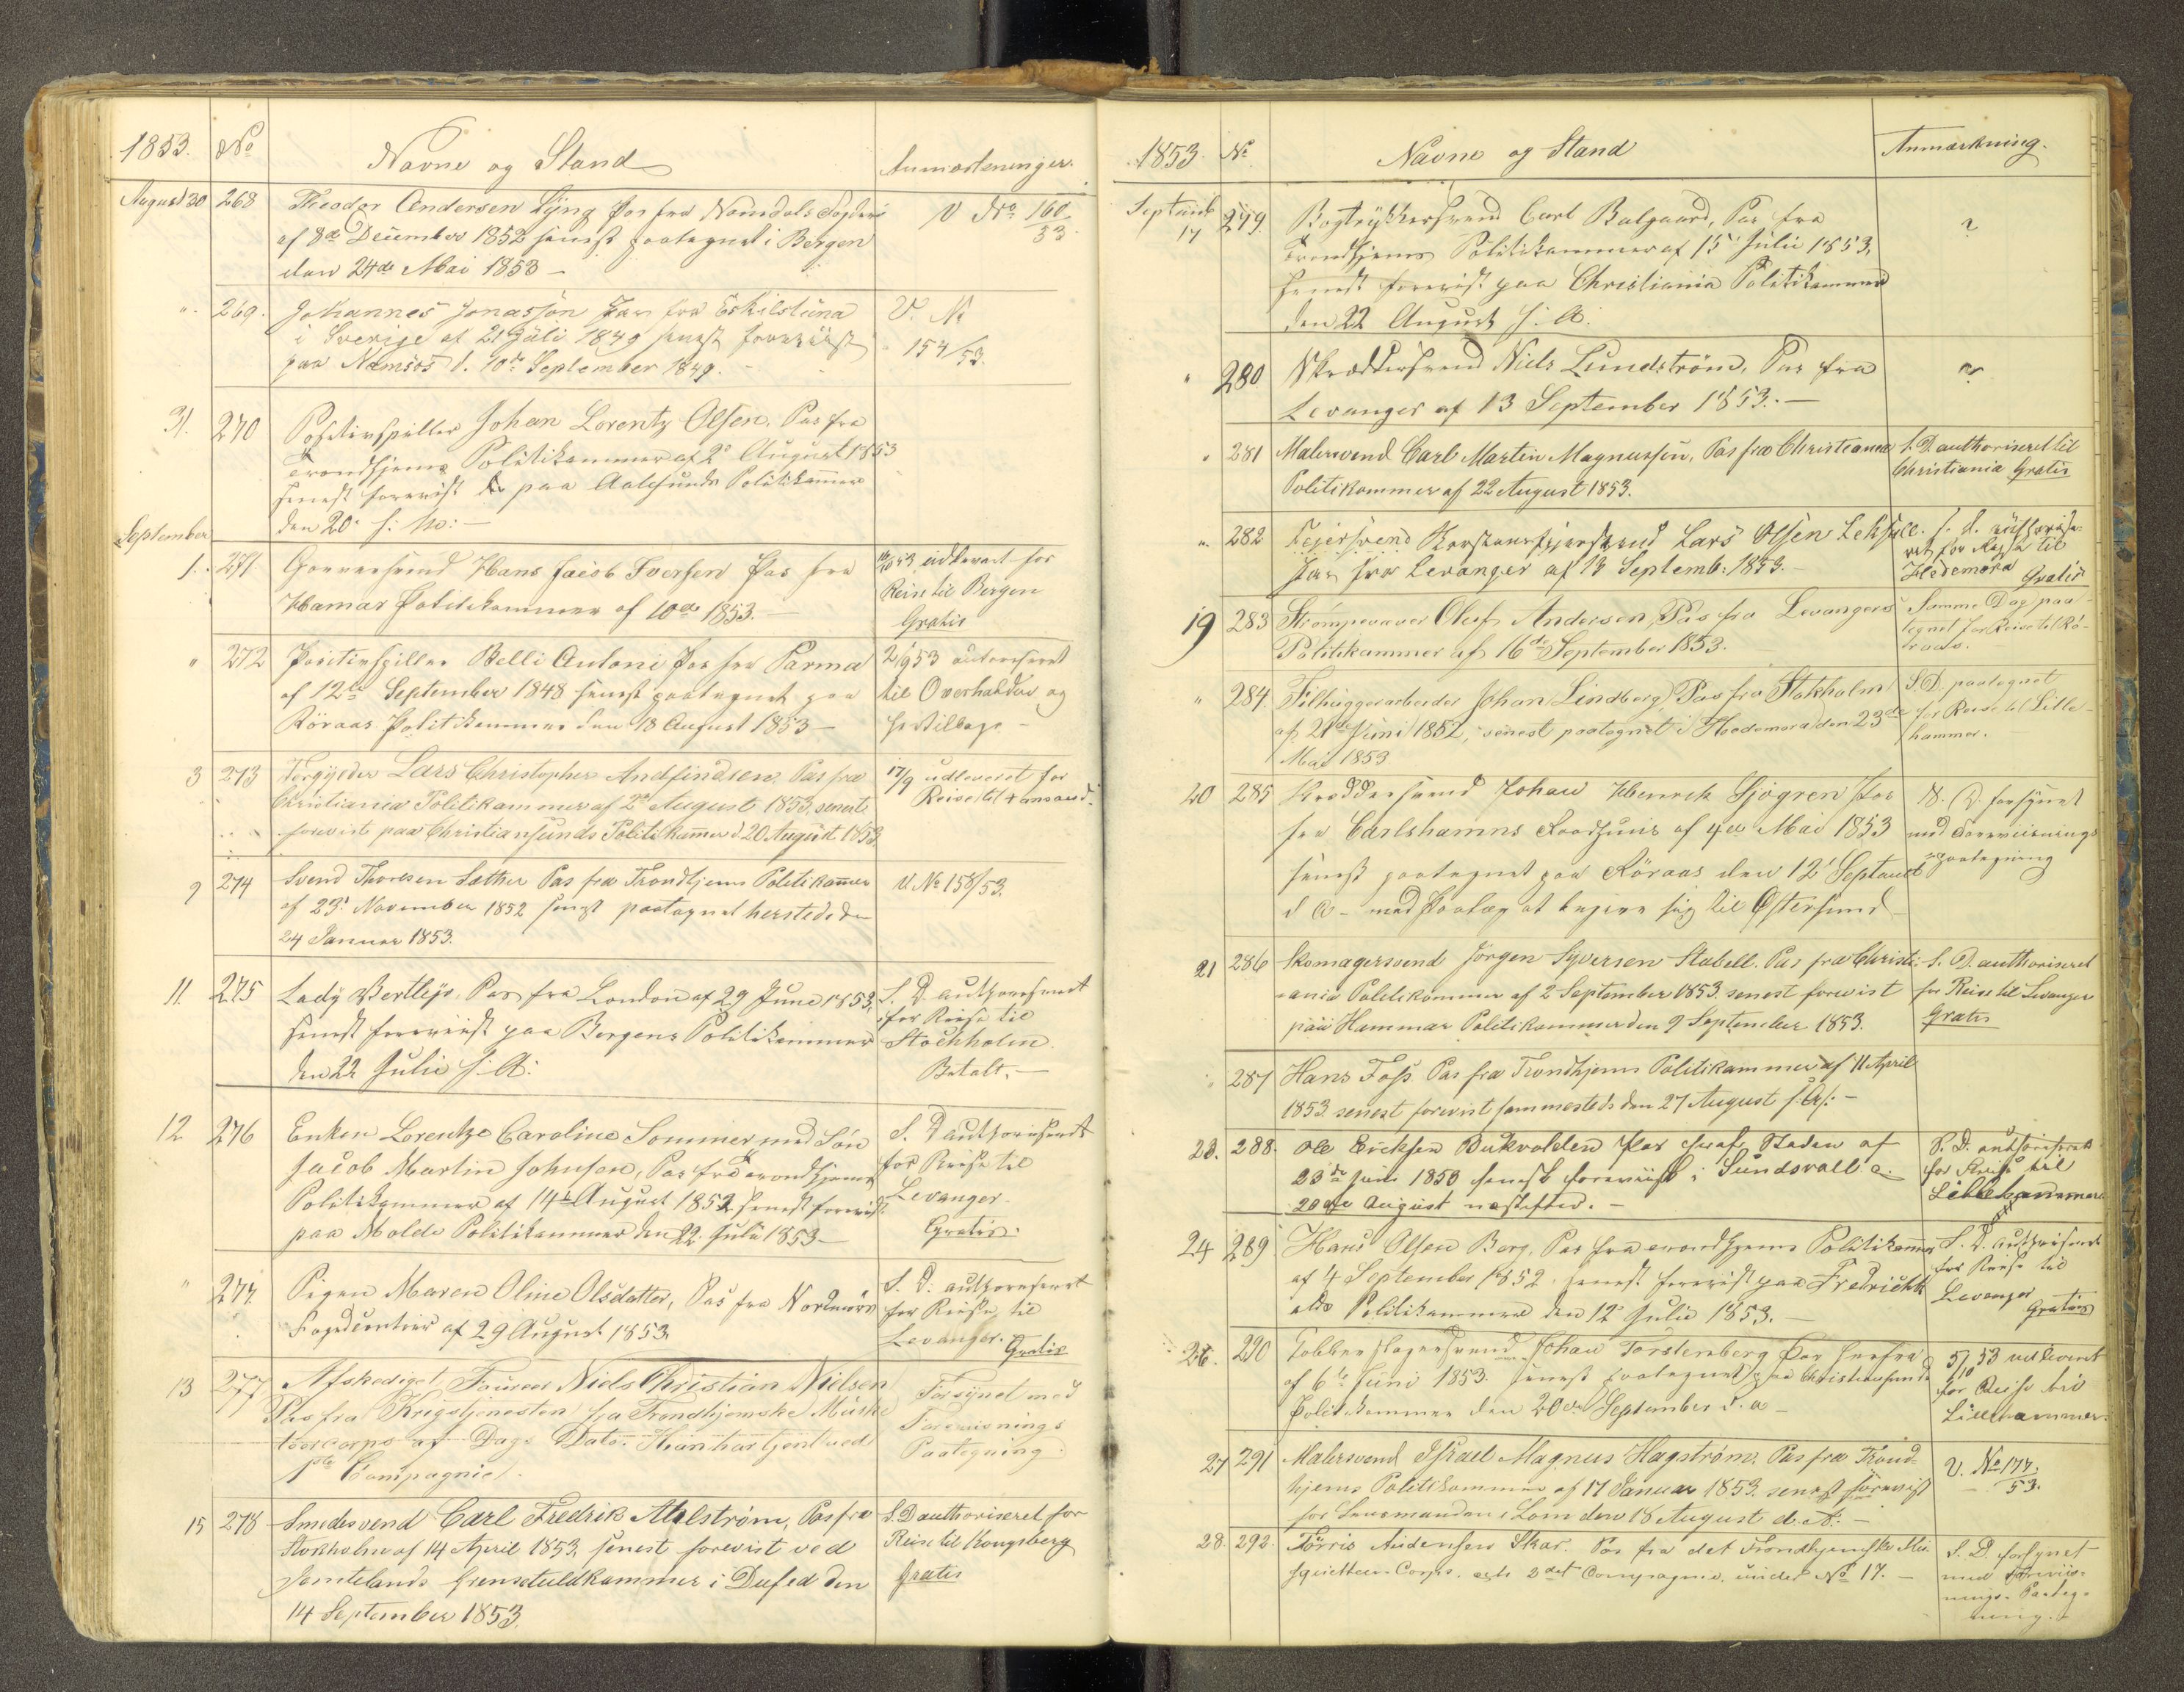 1853. No Navne og Stand Anmærkninger.
August 30 268 Theodor Andersen Lyng Pas fra Namdals Fogderi V No 160/53
af 8de December 1852 senest paategnet i Bergen
den 24de Mai 1853 –
" 269. Johannes Jonasson Pas fra Eskilstuna V. No
i Sverige af 21 Juli 1849 senest foreviist 154/53
paa Namsos d. 10de September 1849.
31. 270 Positivspiller Johan Lorentz Olsen. Pas fra
Trondhjems Politikammer af 2 August 1853
senest forevist paa Aalesunds Politikammer
den 20 s: M: –
September
1. 271. Garversvend Hans Jacob Iversen Pas fra udleveret for
Hamar Politikammer af 10de 1853. – Reise til Bergen
Gratis
" 272 Positivspiller Belli Antoni Pas fra Parma 2/9 53 autoriseret
af 12te September 1848 senest paategnet paa til Overhalden og
Röraas Politikammer den 18 August 1853 – tilbage –
3 273 Lars Christopher Andfindsen, Pas fra 17/9 udleveret for
Christiania Politikammer af 2 August 1853, senest Reise til
forevist paa Christiansunds Politikammer d. 20 August 1853
9 274 Svend Thoresen Sæther Pas fra Trondhjems Politikammer V. No 158/53.
af 23' November 1852 senest paategnet hersteds den
24 Januar 1853.
11. 275 Lady Bertleys, Pas fra London af 29 June 1853, S. D. authoriseret
senest foreviist paa Bergens Politikammer for Reise til
den 22 Julie s. A: Stockholm.
Betalt. –
12 276 Enken Lorentze Caroline Sommer med Søn S. D authoriseret
Jacob Martin Johnsen, Pas fra Trondhjems for Reise til
Politikammer af 14de August 1852 senest forevist Levanger.
paa Molde Politikammer den 22 Juli 1853 – Gratis.
" 277. Pigen Maren Oline Olsdatter, Pas fra Nordmørs S. D. authoriseret
Fogedcontoir af 29 August 1853 for Reise til
Levanger. Gratis
13 277 Afskediget Fourer Niels Christian Nielsen Forsynet med
Pas fra Krigstjenesten fra Trondhjemske Muske Forevisnings
teercorps af Dags Dato. Han har tjent ved Paategning.
1ste Compagnie.
15 278 Smedesvend Carl Fredrik Ahlstrøm, Pas fra S. D authoriseret for
Stokholm af 14 April 1853, senest forevist ved Reise til Kongsberg
Jamtelands Grensetuldkammer i Dufed den Gratis
14 September 1853.
1853. No Navne og Stand Anmærkning.
Septemb 17 279. Bogtrykkersvend Carl Balgaard, Pas fra ?
Trondhjems Politikammer af 15 Julii 1853,
senest forevist paa Christiania Politikammer
den 22 August s. A.
" 280 Skreddersvend Niels Lundstrøm, Pas fra ?
Levanger af 13 September 1853. –
" 281 Malersvend Carl Martin Magnussen, Pas fra Christiania S. D. authoriseret til
Politikammer af 22 August 1853. Christiania Gratis
" 282 Feiersvend Lars Olsen
Pas fra Levanger af 13 Septemb: 1853. – for Reise til
Hedemora Gratis
19 283 Strømpevæver Oluf Andersen, Pas fra Levangers Samme Dag paa-
Politikammer af 16de September 1853. tegnet for Reise til Rö-
raas.
" 284. Filhuggerarbeider Johan Lindberg, Pas fra Stokholm S. D. paategnet
af 21de Juni 1852, senest paategnet i Hedemora den 23de for Reise til Lille-
Mai 1853 hammer.
20 285 Skreddersvend Johan Henrik Sjøgren Pas S. D. forsynet
fra Carlshamns Raadhuus af 4de Mai 1853 med Foreviisnings
senest paategnet paa Röraas den 12' September paategning
d A – med Paalæg at begive sig til Østersund –
21 286 Skomagersvend Jørgen Syversen Stabell. Pas fra Christi- S. D. authoriseret
ania Politikammer af 2 September 1853. senest forevist for Reise til Levanger
paa Hammar Politikammer den 9 September 1853. Gratis
" 287 Hans Foss Pas fra Trondhjems Politikammer af 11 April
1853 senest forevist sammesteds den 27 August s. A: –
23. 288. Ole Ericksen Bukvolden Pas fra Staden af S. D. authoriseret
23de Juni 1853 senest foreviist i Sundsvall a. for Reise til
20de August næstefter. – Lillehammer
24 289 Hans Olsen Berg, Pas fra Trondhjems Politikammer S. D. authoriseret
af 4 September 1852. senest forevist paa Fredrichs for Reise til
alds Politikammer den 12 Julie 1853. – Levanger
Gratis
26. 290 Kobberslagersvend Johan Torstenberg Pas herfra 5/10 53 udleveret
af 6te Juni 1853. senest paategnet paa Christiansunds for Reise til
Politikammer den 20de September d. a – Lillehammer.
27 291 Malersvend Israel Magnus Hagstrøm, Pas fra Trond- V. No 177/53.
hjems Politikammer af 17 Januar 1853. senest forevist
for Lensmanden i Lom den 18 August d. A: –
28. 292. Törris Audensen Skar. Pas fra det Trondhjemske Mu- S. D. forsynet
squetteer Corps. 2det Compagnie under No 17. – med Foreviis-
nings-Paateg-
ning. –